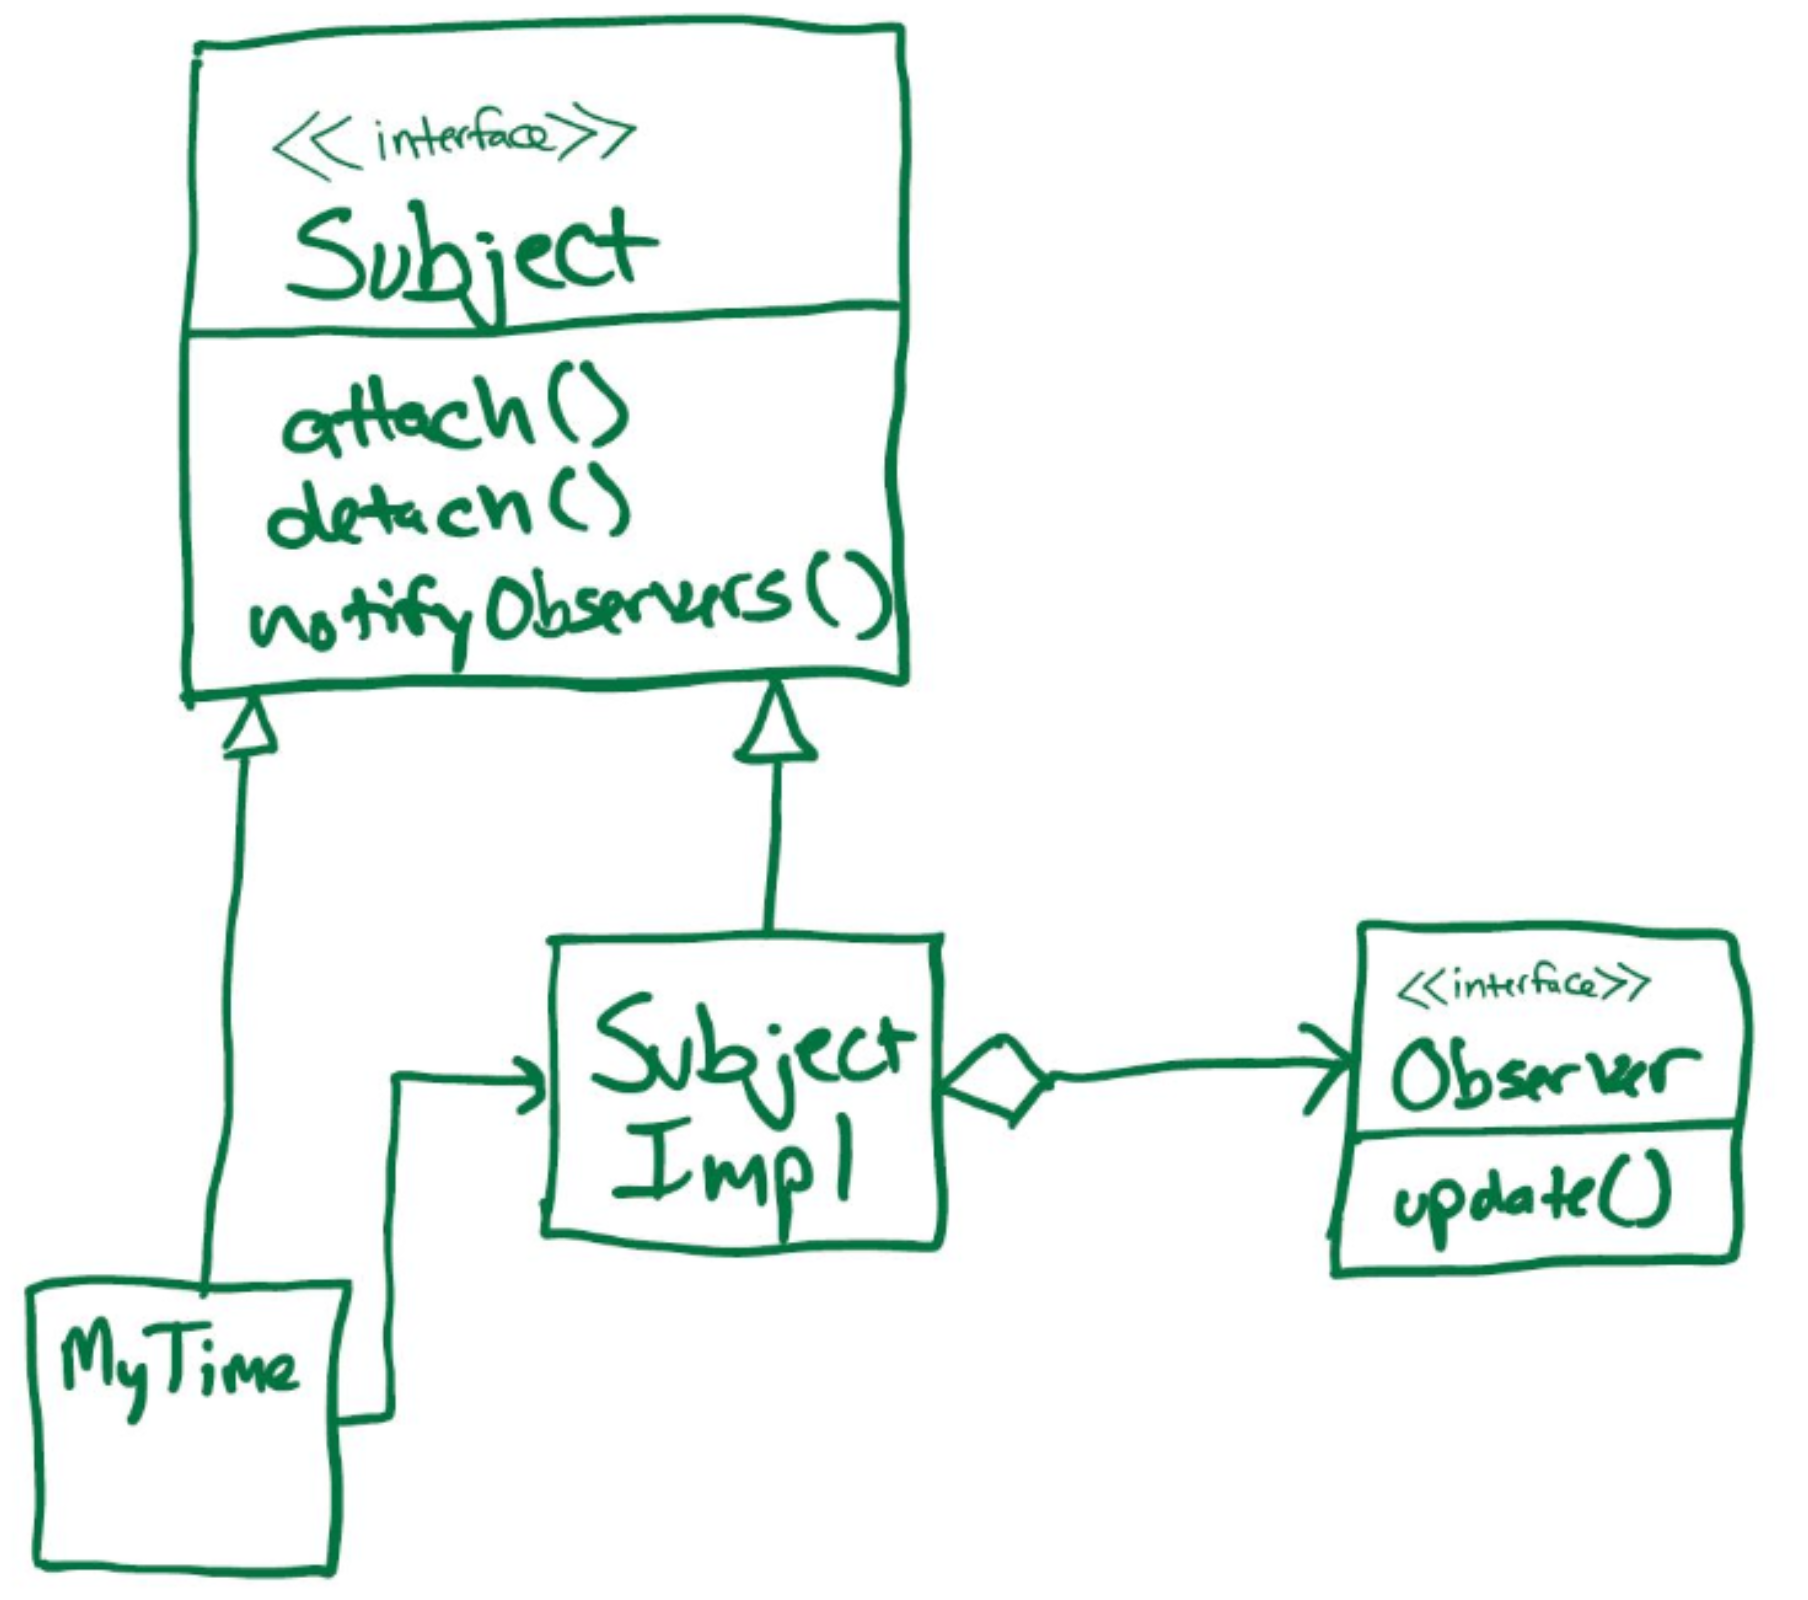 <<interface>>
Subject
attach()
detach()
notifyObservers()
Subject
Impl
<<interface>>
Observer
update()
MyTime